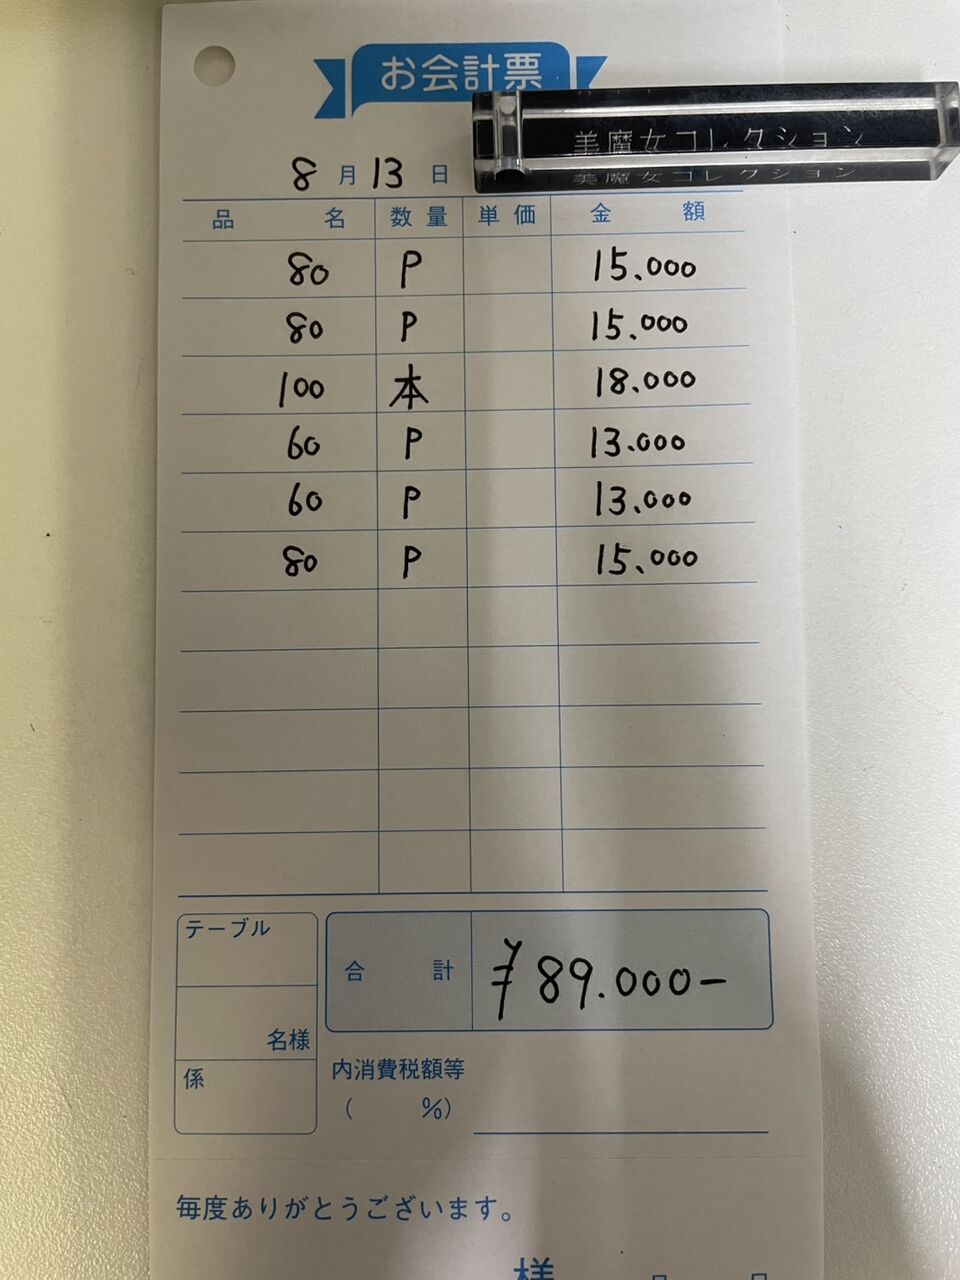 お会計票
美魔女コレクション
美魔女コレクション
8月13日
品名 数量 単価 金額
80 P 15.000
80 P 15.000
100 本 18.000
60 P 13.000
60 P 13.000
80 P 15.000
テーブル
名様
係
合計 ¥89.000-
内消費税額等
( %)
毎度ありがとうございます。
様